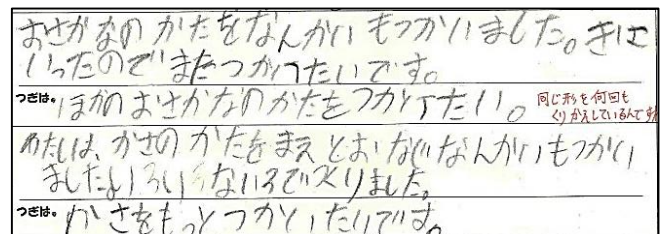 おさかなの かたをなんかいもつかいました。きに
いったのでまたつかってたいです。
つぎは。ほかのおさかなのかたをつかってたい。
同じ形を何回も
くりかえしているんですね
わたしは、かさの かたをまえとおなじなんかいもつかい
ましたよいろいろないろでつくりました。
つぎは。かさをもっとつかいたいです。